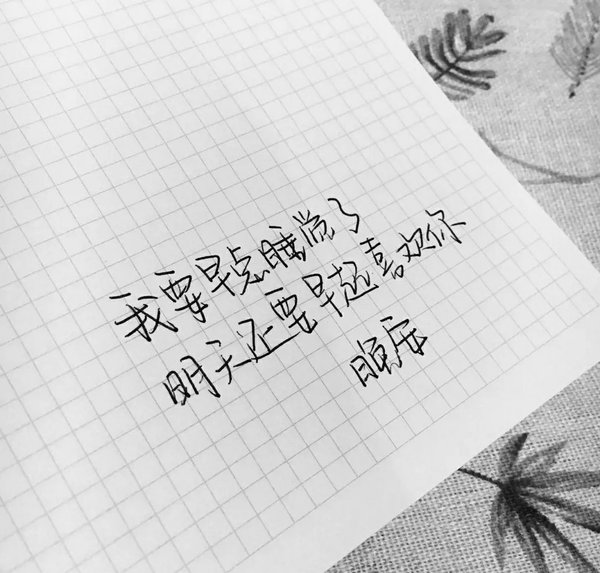 我要早点睡觉了
明天还要早起喜欢你
晚安